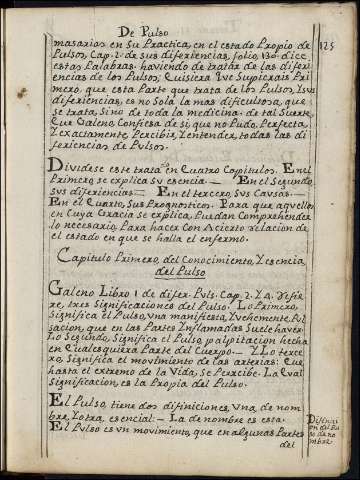 De Pulso
125
masarias en Su Practica, en el estado Propio de
Pulsos, Cap. 1. de sus diferiencias, folio, 130. dice
estas Palabras. haviendo de tratar de las diferi-
encias de los Pulsos, Quisiera Que Supierais Pri
mero, que esta Parte que trata de los Pulsos, Y sus
diferiencias, es no Sola la mas dificultosa, que
se trata, Sino de toda la medicina. de tal Suerte,
Que Galeno, Confiesa de si, que no Pudo, Perfecta,
Y exactamente, Percibir, Y entender, todas las di
feriencias de Pulsos.
Dividese este trata.to en Quatro Capitulos. En el
Primero, se explica Su esencia. — En el Segundo,
Sus diferiencias. — En el tercero, Sus Causas. —
En el Quarto, Sus Prognosticos. Para que aquellos
en Cuya Gracia se explica, Puedan Comprehender
lo necesario, Para hacer Con Acierto relacion de
el estado en que se halla el enfermo.
Capitulo Primero, del Conocimiento, Y esencia
del Pulso
Galeno Libro 1 de difer. Puls. Cap. 2. Y 4. refie
re, tres Significaciones del Pulso. La Primero,
Significa el Pulso, una manifiesta, Y vehemente, Pul
sacion, que en las Partes Inflamadas Suele haver.
Lo Segundo, Significa el Pulso, palpitacion hecha
en Qualesquiera Parte del Cuerpo. — Y Lo terce
ro, Significa el movimiento de las arterias: Que
hasta el extremo de la Vida, se Percibe. La Qual
Significacion, es la Propia del Pulso.
El Pulso, tiene dos difiniciones, Una, de nom-
bre, Y otra, esencial. — La de nombre es esta.
El Pulso es un movimiento, que en algunas Partes
Difinici
on del Pul
so de no
mbre.
del